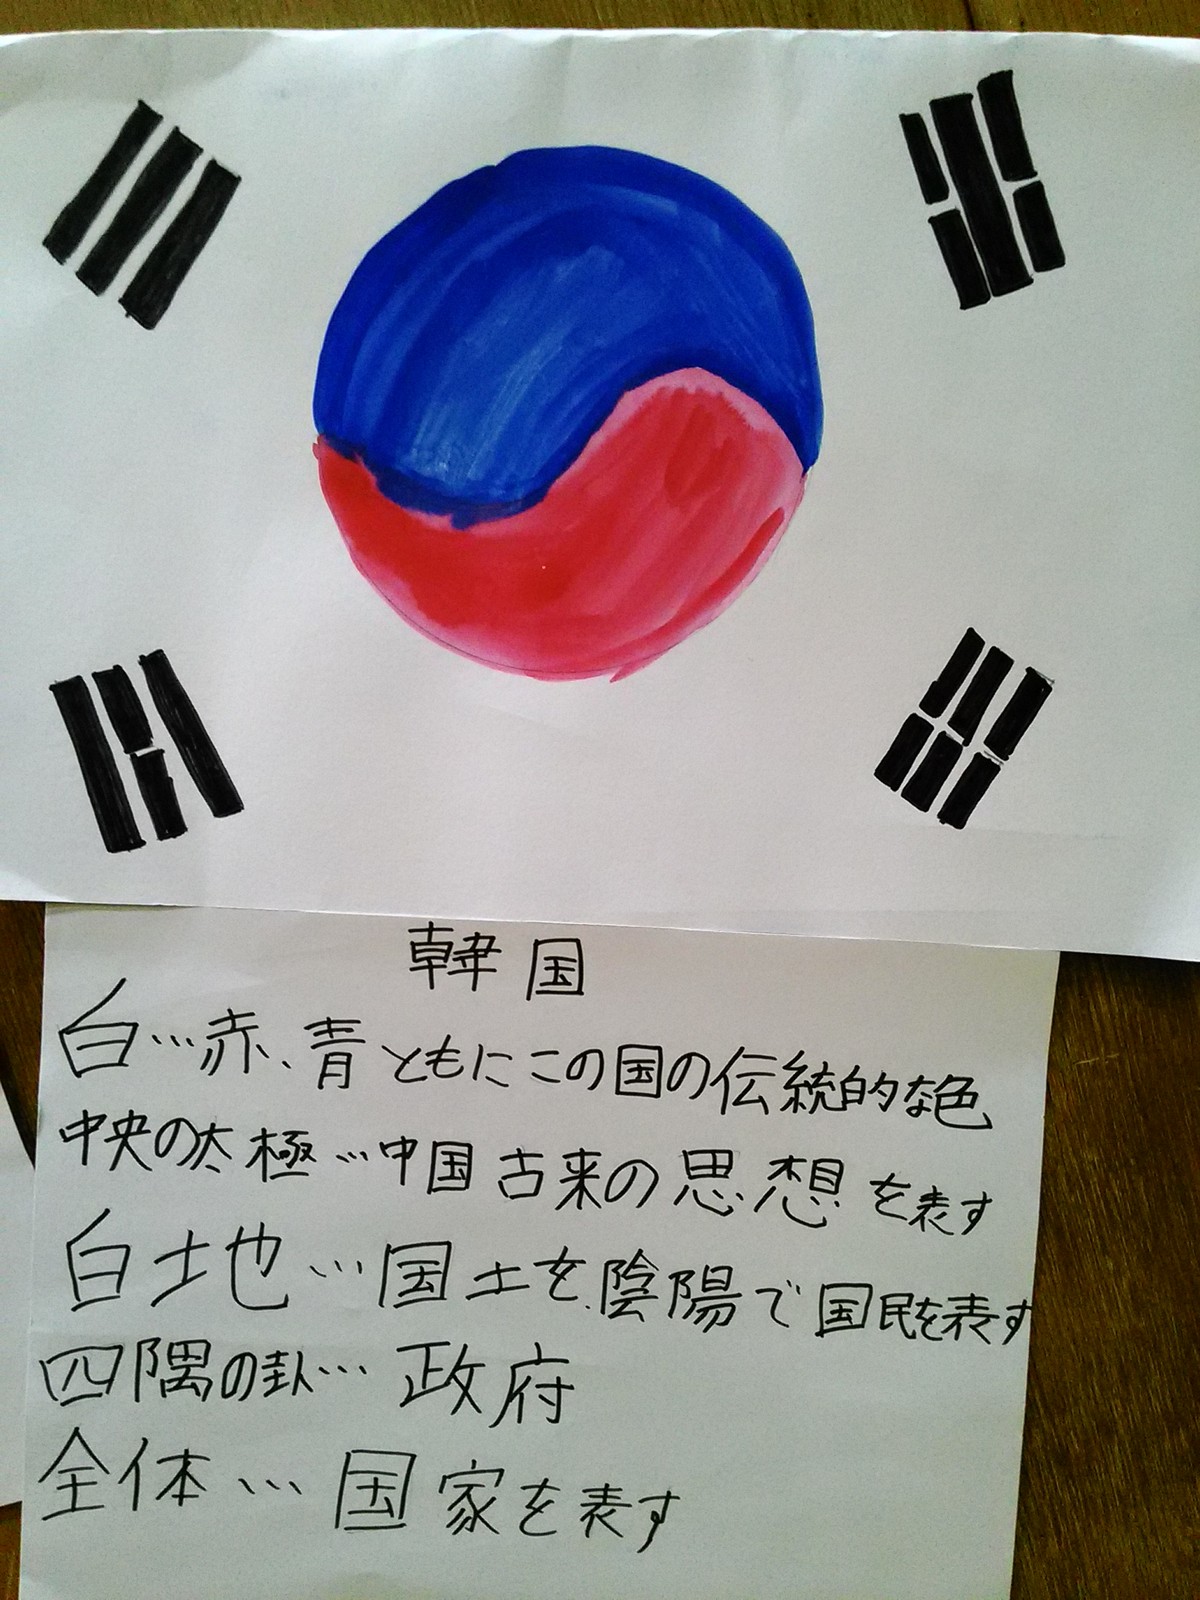 韓国
白…赤、青ともにこの国の伝統的な色
中央の太極…中国古来の思想を表す
白土地…国土を陰陽で国民を表す
四隅の卦…政府
全体…国家を表す